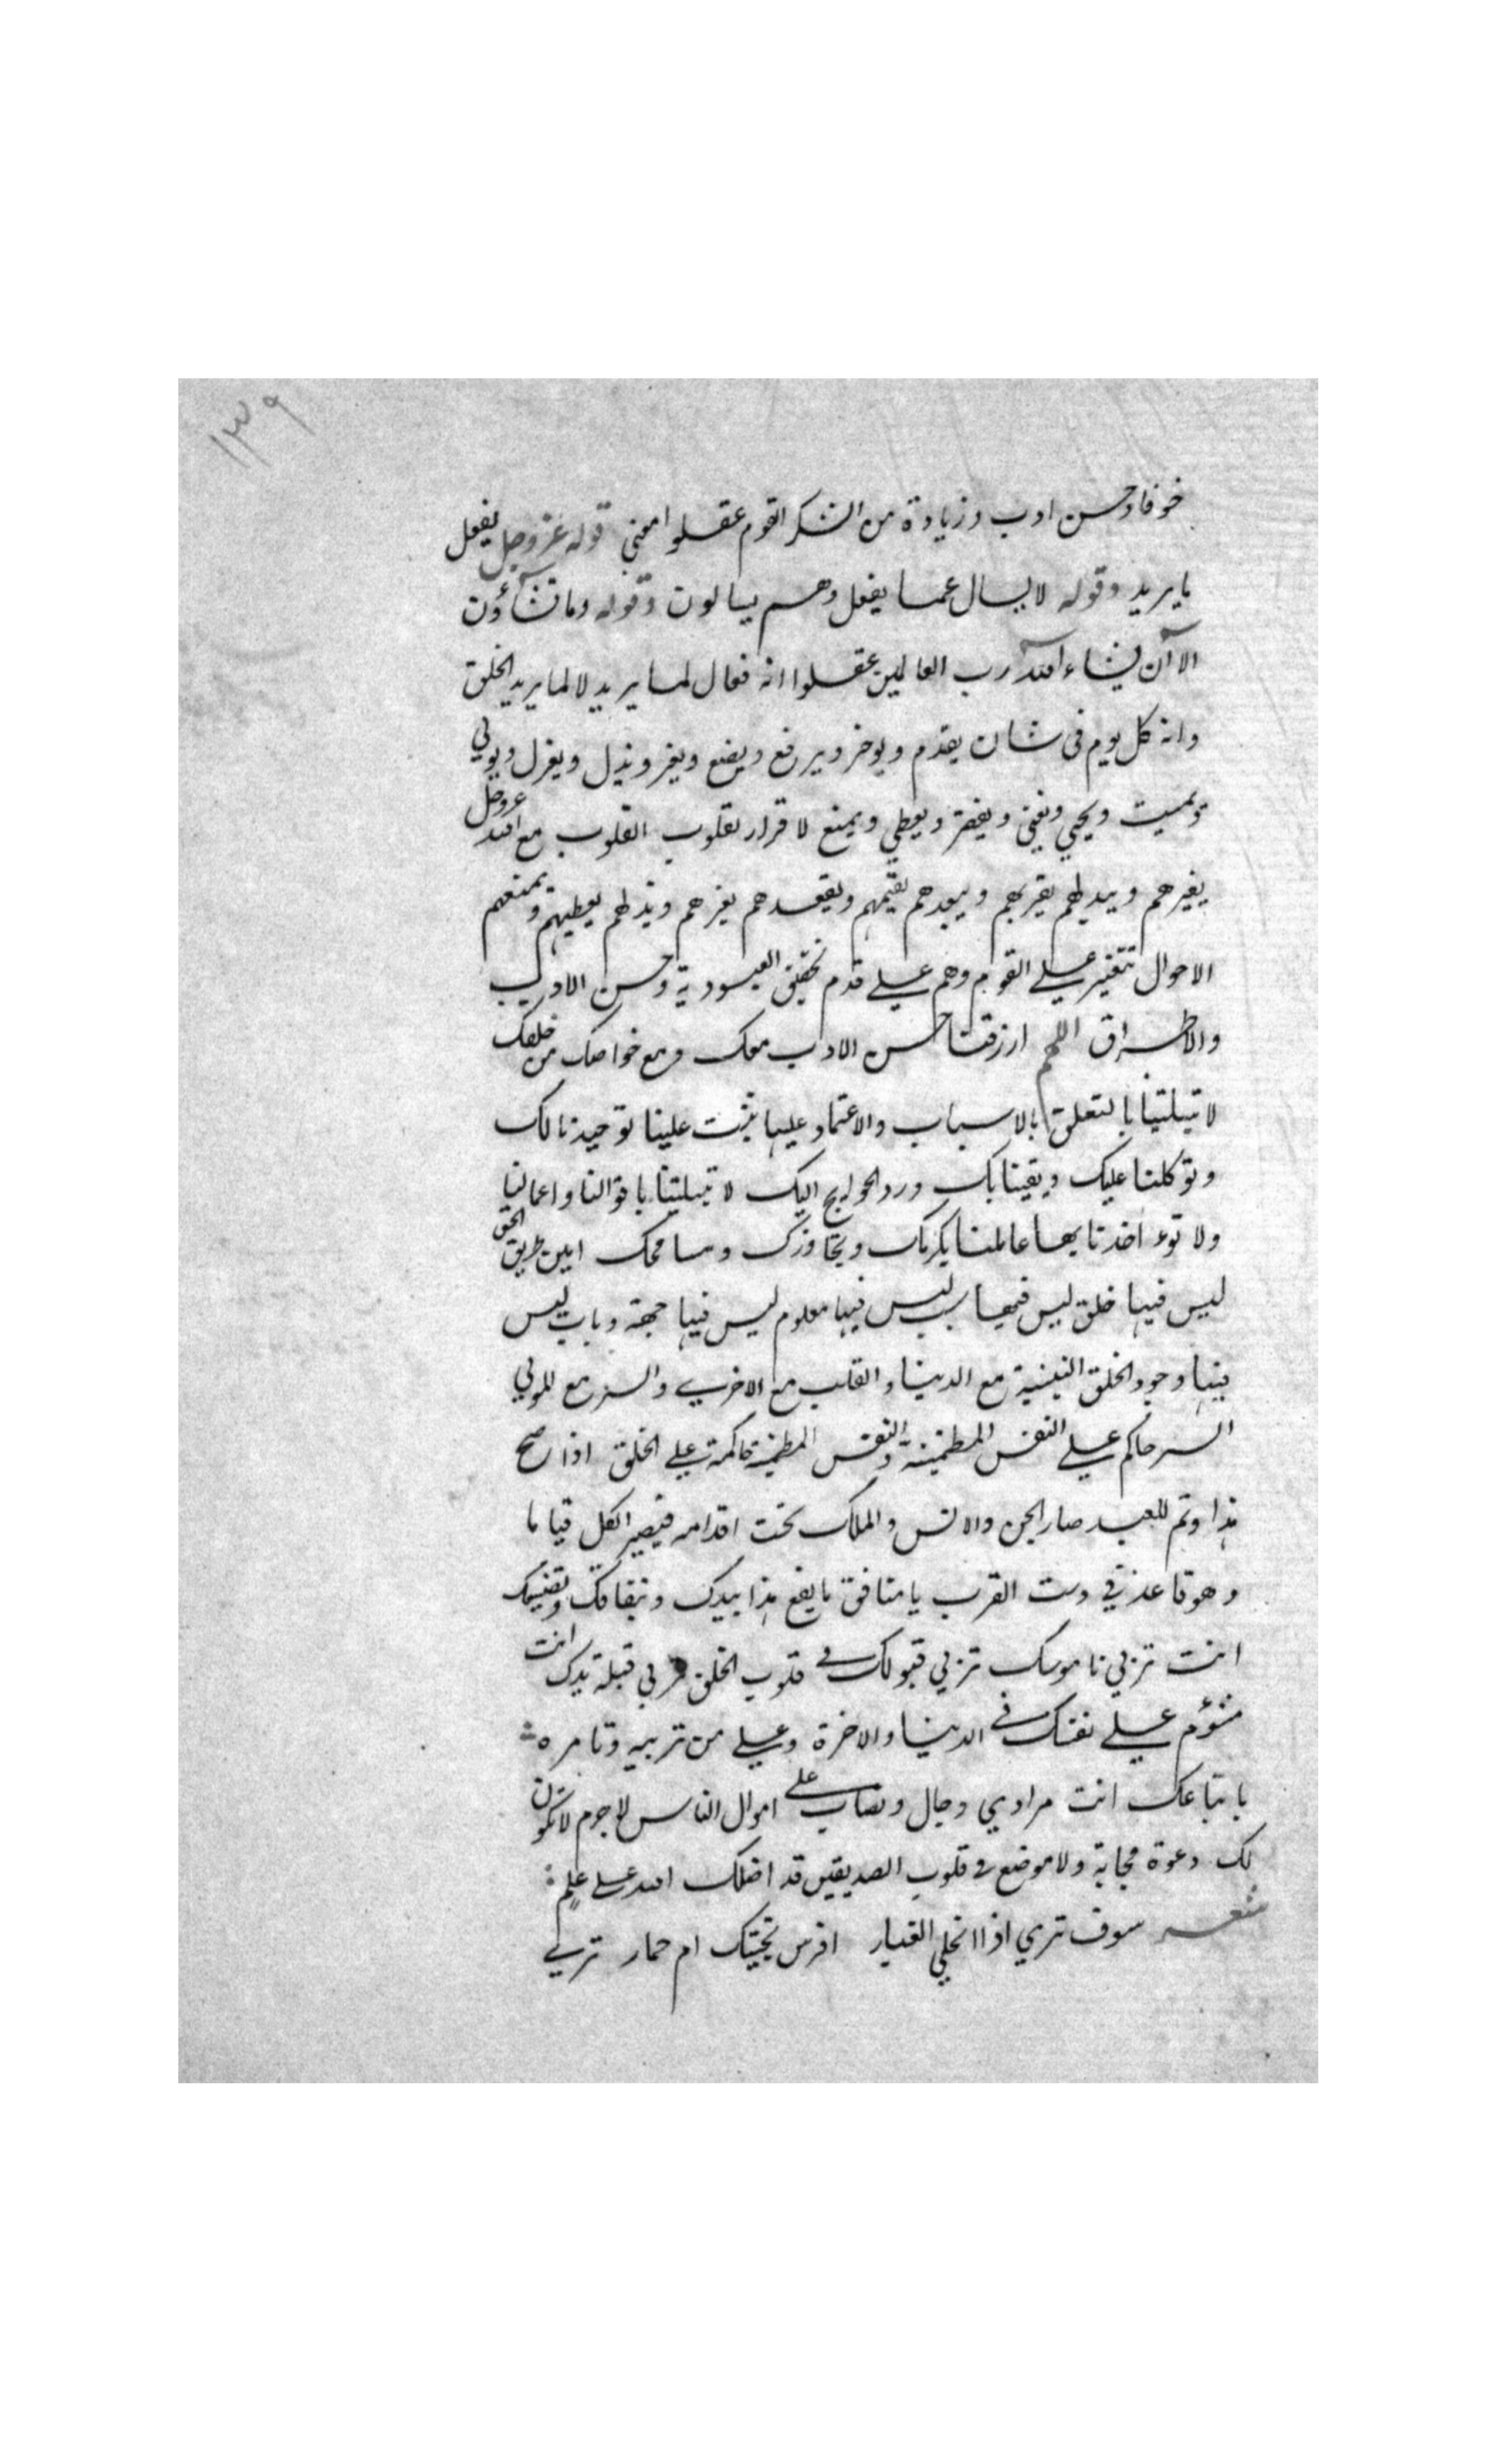 ١٣٩
خوفا وحسن ادب وزيادة من الشكر القوم عقلوا معنى قوله عز وجل يفعل
ما يريد وقوله لا يسال عما يفعل وهم يسالون وقوله وما تشآؤن
الا آن يشاء الله رب العالمين عقلوا انه فعال لما يريد لا لما يريد الخلق
وانه كل يوم فى شان يقدم ويوخر ويرفع ويضع ويعز ويذل ويعزل ويولي
ويميت ويحيي ويغني ويفقر ويعطي ويمنع لا قرار لقلوب القلوب مع الله عز وجل
يغيرهم ويبدلهم يقربهم ويبعدهم يقيمهم ويقعدهم يعزهم ويذلهم يعطيهم ويمنعهم
الاحوال تتغير علي القوم وهم علي قدم تحقيق العبودية وحسن الادب
والاطراق اللهم ارزقنا حسن الادب معك ومع خواصك من خلقك
لا تبلنا بالتعلق بالاسباب والاعتماد عليها ثبت علينا توحيدنا لك
وتوكلنا عليك ويقيننا بك ورد الحوايج اليك لا تبلنا باقوالنا واعمالنا
ولا توء اخذنا بها عاملنا بكرمك وتجاوزك ومسامحتك امين طريق الحق
ليس فيها خلق ليس فيها سبب ليس فيها معلوم ليس فيها جهة وباب ليس
فيها وجود الخلق البنية مع الدنيا والقلب مع الاخري والسر مع المولي
السر حاكم علي النفس المطمئنة والنفس المطمئنة حاكمة علي الخلق اذا صح
هذا وتم للعبد صار الجن والانس والملك تحت اقدامه فيصير الكل قياما
وهو قاعد في دست القرب يا منافق ما يقع هذا بيدك ونفاقك وتصنعك
انت تربي ناموسك تربي قبولك في قلوب الخلق تربي قبلة يدك انت
مشؤم علي نفسك في الدنيا والاخرة وعلي من تربيه وتامره
باتباعك انت مرادي دجال ونصاب على اموال الناس لا جرم لا تكون
لك دعوة مجابة ولا موضع في قلوب الصديقين قد اضلك الله علي علم
شعر سوف تري اذا انجلي الغبار افرس تحتك ام حمار تري